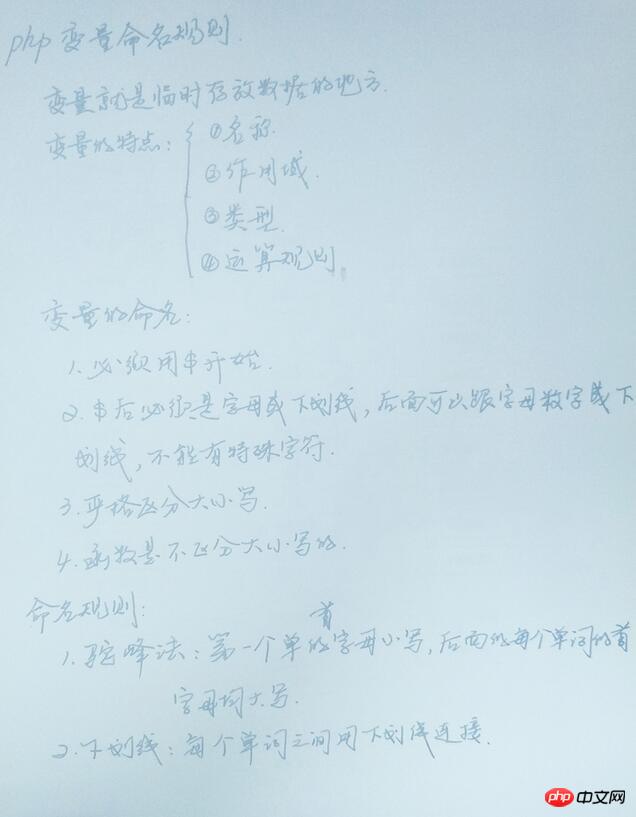 php 变量命名规则.
变量就是临时存放数据的地方.
变量的特点:
①名称.
②作用域.
③类型.
④运算规则.
变量的命名:
1. 必须用$开始.
2. $后必须是字母或下划线, 后面可以跟字母数字或下
划线, 不能有特殊字符.
3. 严格区分大小写.
4. 函数是不区分大小写的.
命名规则:
首
1. 驼峰法: 第一个单的字母小写, 后面的每个单词的首
字母均大写.
2. 下划线: 每个单词之间用下划线连接.
php 中文网